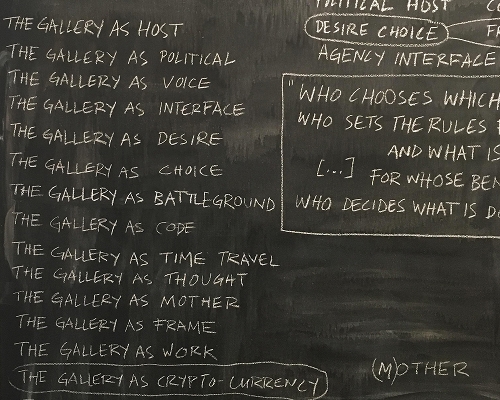 THE GALLERY AS HOST
THE GALLERY AS POLITICAL
THE GALLERY AS VOICE
THE GALLERY AS INTERFACE
THE GALLERY AS DESIRE
THE GALLERY AS CHOICE
THE GALLERY AS BATTLEGROUND
THE GALLERY AS CODE
THE GALLERY AS TIME TRAVEL
THE GALLERY AS THOUGHT
THE GALLERY AS MOTHER
THE GALLERY AS FRAME
THE GALLERY AS WORK
THE GALLERY AS CRYPTO-CURRENCY
POLITICAL HOST
DESIRE CHOICE
AGENCY INTERFACE
"WHO CHOOSES WHICH
WHO SETS THE RULES
AND WHAT IS
[...] FOR WHOSE BEN
WHO DECIDES WHAT IS
(M)OTHER